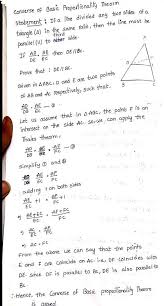 Converse of Basic Proportionality Theorem
Statement : If a line divided any two sides of a
triangle (Δ) in the same ratio, then the line must be
parallel (||) to third side.
If AD/DB = AE/EC then DE||BC.
Prove that : DE||BC
Given in ΔABC, D and E are two points
of AB and AC respectively, such that,
AD/DB = AE/EC
Let us assume that in ΔABC, the point F is an
intersect on the side AC. So we can apply the
Thales theorem,
AD/DB = AF/FC
simplify ① and ②
AE/EC = AF/FC
adding 1 on both sides
AE/EC + 1 = AF/FC + 1
⇒ AC = FC
From the above we can say that the points
E and F are coincide on AC. i.e, DF coincides with
DE. Since DF is parallel to BC, DE is also parallel to
BC.
∴ Hence, the Converse of Basic proportionality Theorem
is proved.